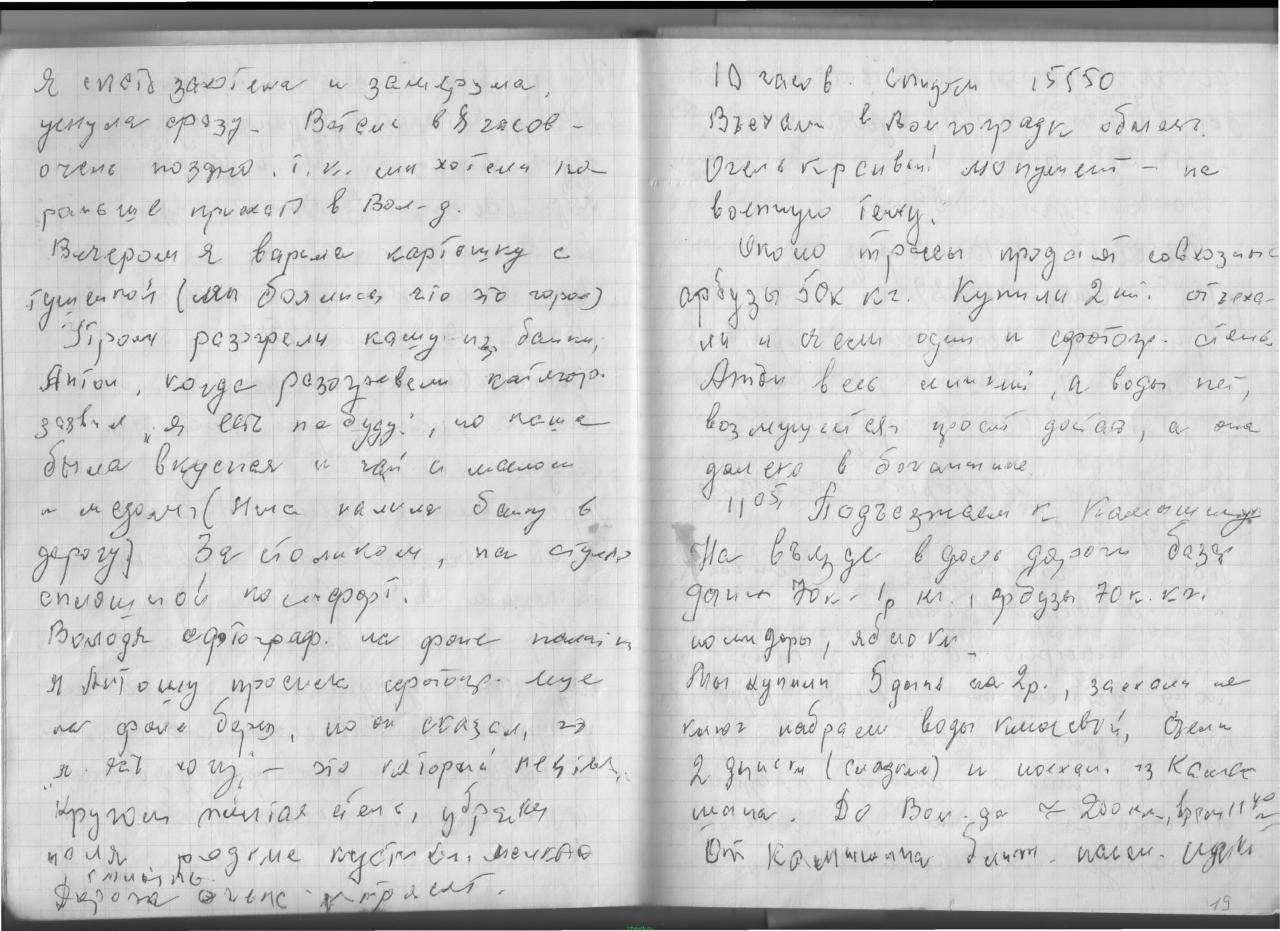 Я спать захотела и замёрзла,
уснула сразу. Встали в 8 часов –
очень поздно, т.к. мы хотели по-
раньше приехать в Вол-д.
Вечером я варила картошку с
тушенкой (мы боялись что это горох)
Утром разогрели кашу из банки,
Антон, когда разогревали категор.
заявил „я есть не буду", но каша
была вкусная и чай с маслом
и медом (Нина налила банку в
дорогу) За столиком, на стульях
сплошной комфорт.
Володя сфотограф. на фоне палатки
я Антошу просила сфотогр. меня
на фоне берез, но он сказал, что
я
Кругом желтая степь, убраны
поля, редкие кустики, мелкие
Дорога очень трясет.
10 часов. Спидом 15550
Въехали в Волгоградск область.
Очень красивый монумент – на
военную тему.
Около трассы продают совхозные
арбузы 50к кг. Купили 2 шт. отъеха-
ли и съели один и сфотогр. степь.
Антон весь липкий, а воды нет,
возмущается просит достать, а она
далеко в багажнике.
11 05 Подъезжаем к Камышину
На въезде вдоль дороги базар
дыни 70к – 1р кг., арбузы 70к. кг.
помидоры, яблоки
Мы купили 5 дынь на 2р., заехали на
ключ набрали воды ключевой, съели
2 дыньки (сладкие) и поехали из Камы-
шина. До Вол-да ~ 200 км, время 11 40
От Камышина ближ. насел.
19